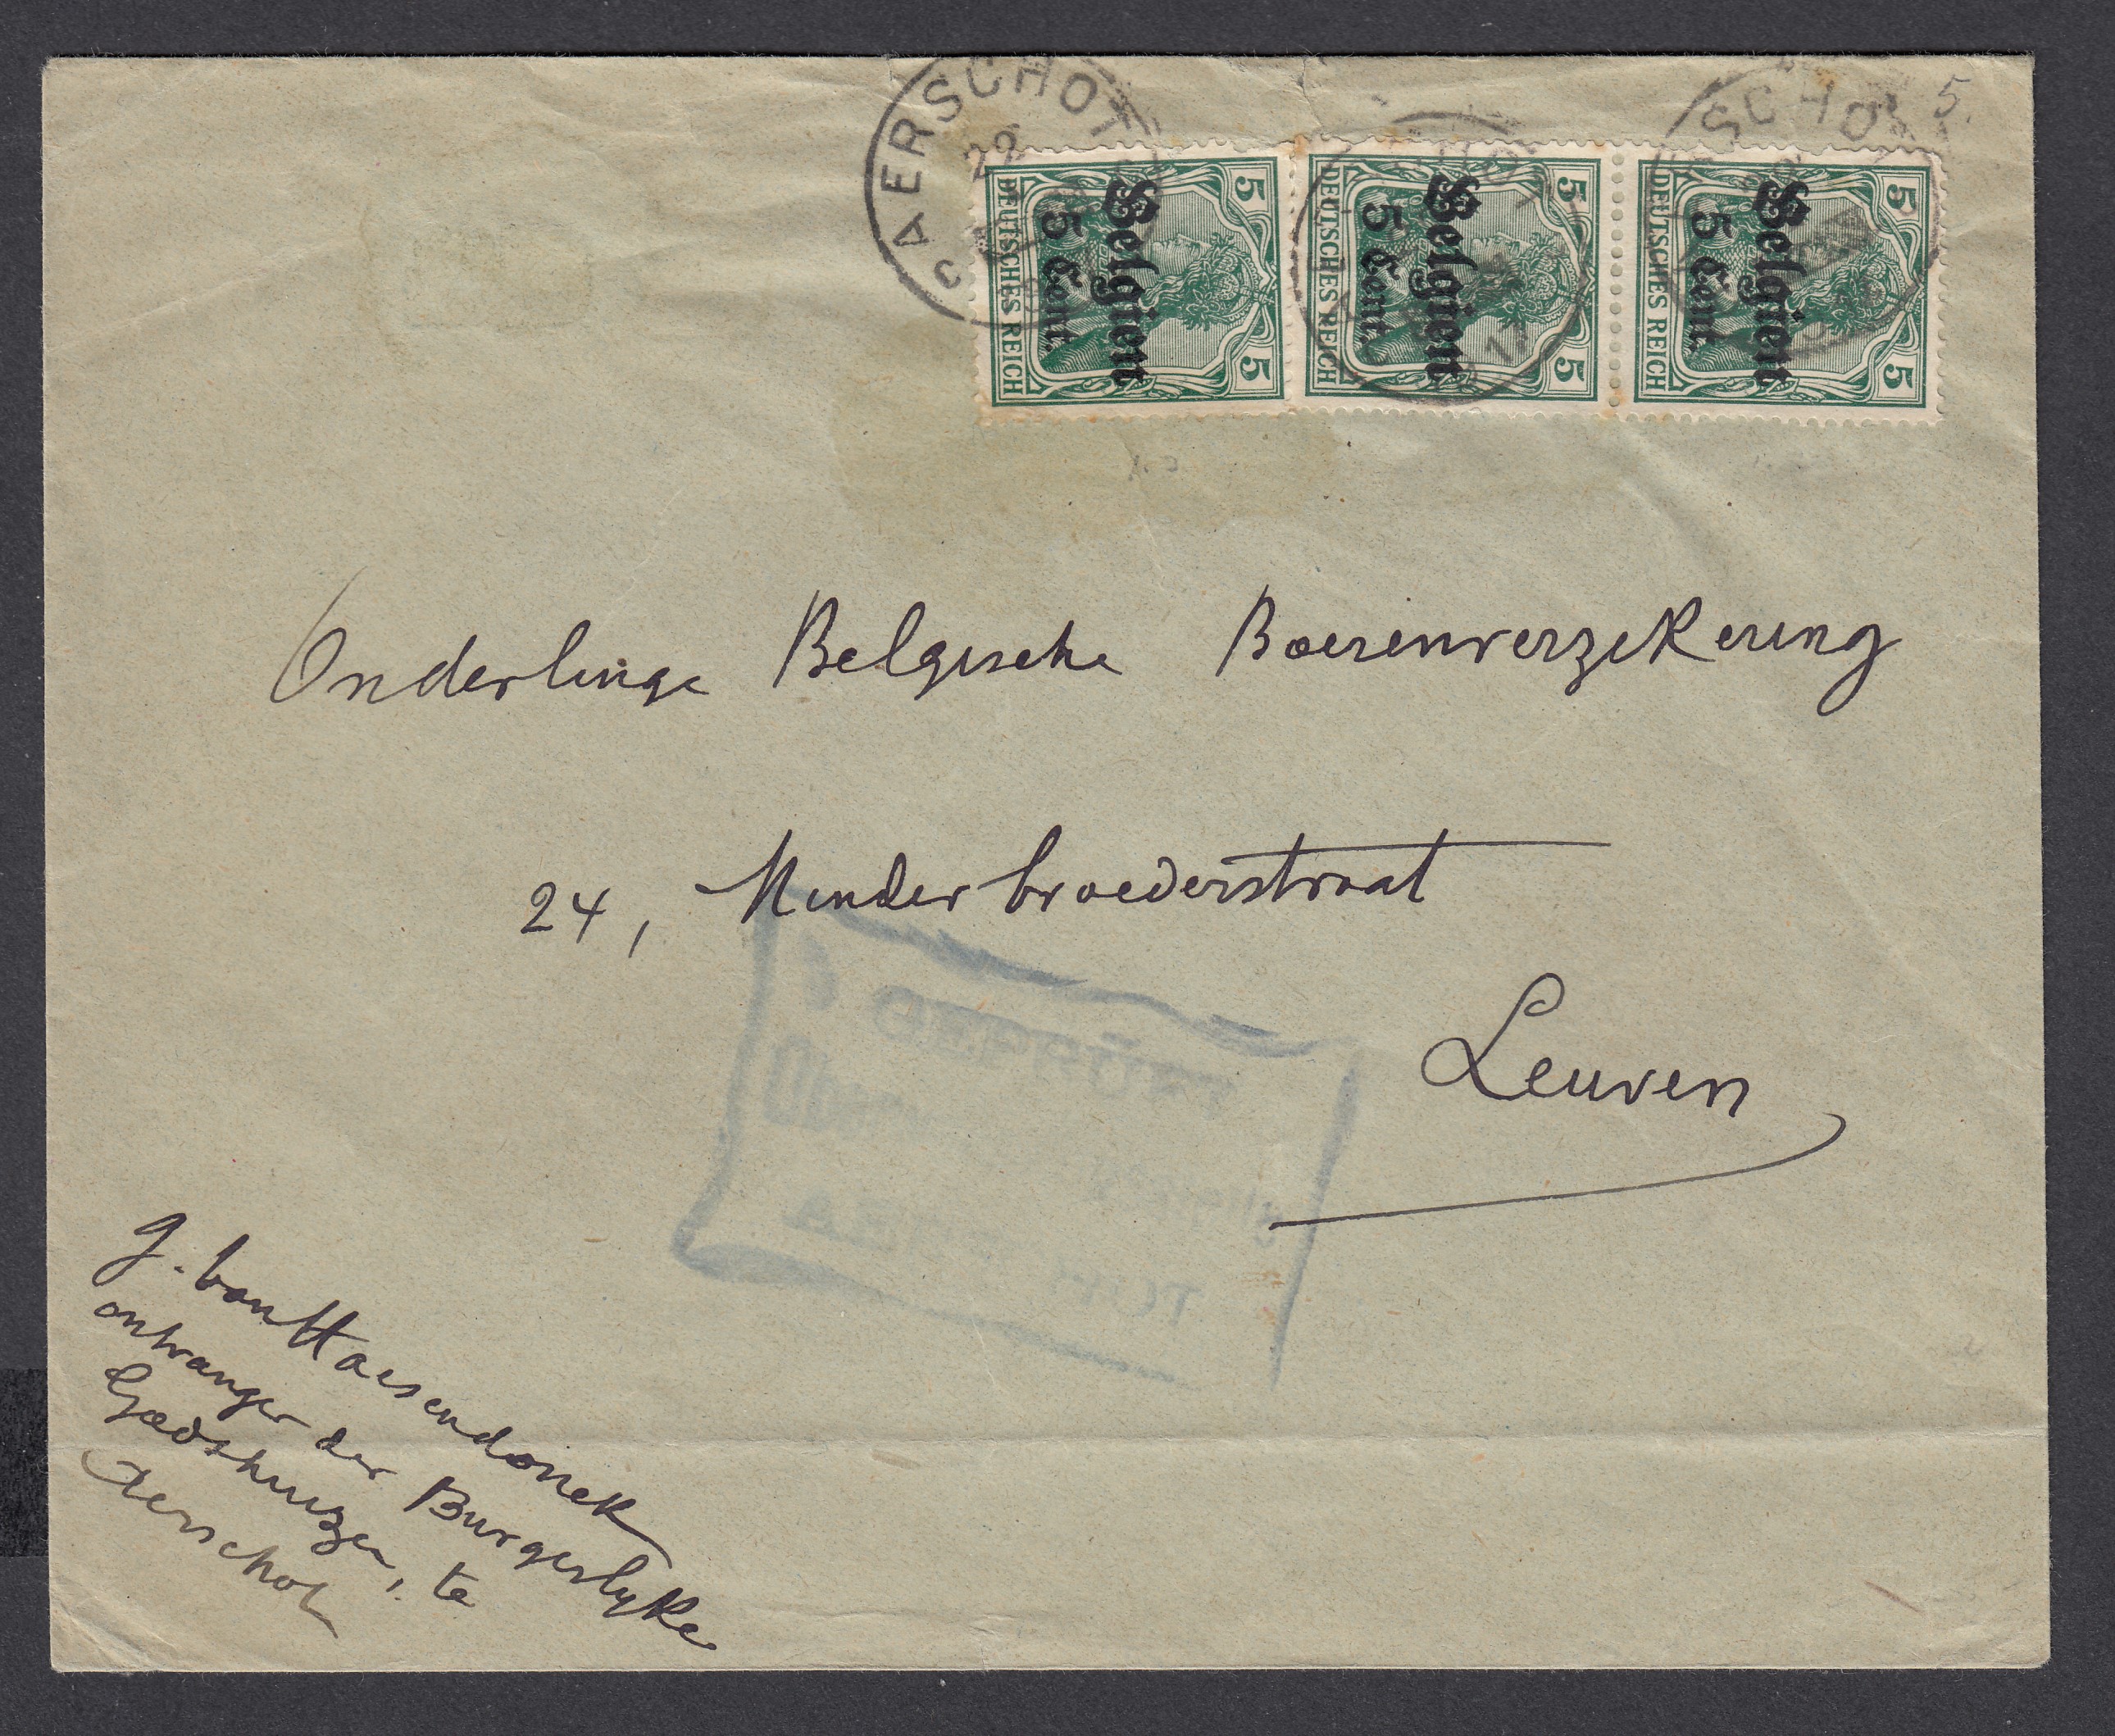 AERSCHOT
22
5.
SCHO
5 5
Belgien
5 Cent.
DEUTSCHES REICH
5 5
Belgien
5 Cent.
DEUTSCHES REICH
5 5
Belgien
5 Cent.
DEUTSCHES REICH
Onderlinge Belgische Boerenverzekering
24, Minderbroederstraat
Leuven
GEPRÜFT
g. van Haesendonck
ontvanger der Burgerlyke
Godshuizen, te
Aerschot